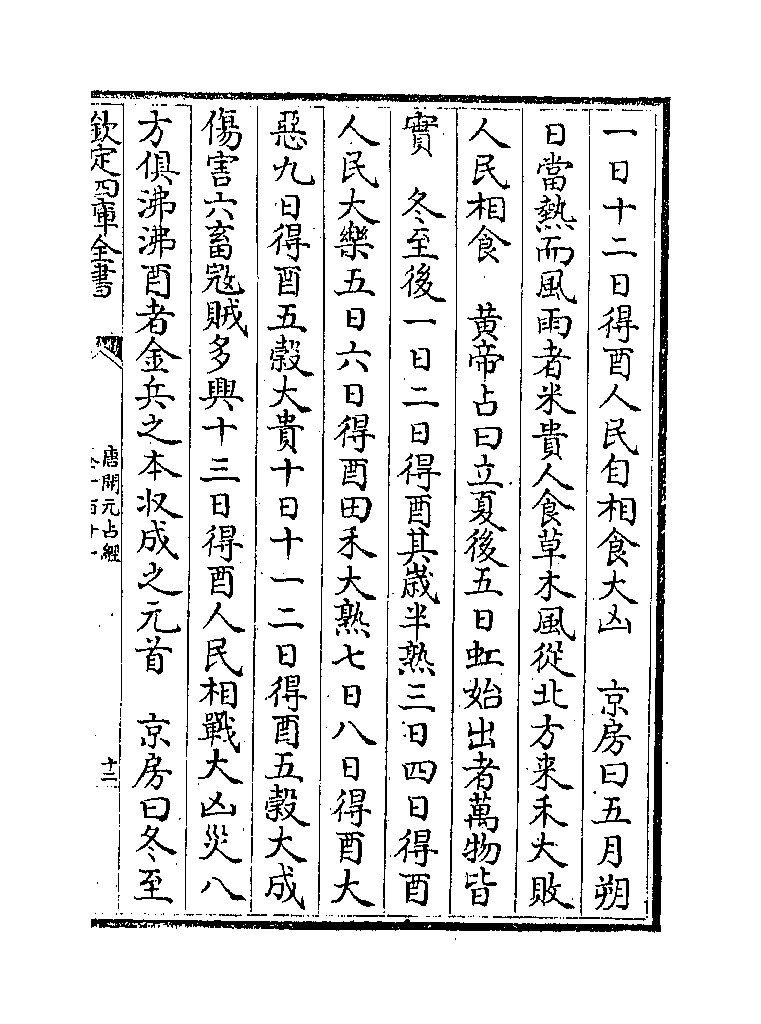 一日十二日得酉人民自相食大凶　京房曰五月朔
日當熱而風雨者米貴人食草木風從北方来禾大敗
人民相食　黄帝占曰立夏後五日虹始出者萬物皆
實　冬至後一日二日得酉其嵗半熟三日四日得酉
人民大樂五日六日得酉田禾大熟七日八日得酉大
惡九日得酉五糓大貴十日十一二日得酉五糓大成
傷害六畜寇賊多興十三日得酉人民相戰大凶災八
方俱沸沸酉者金兵之本收成之元首　京房曰冬至
欽定四庫全書
唐開元占經
卷一百十一
十二